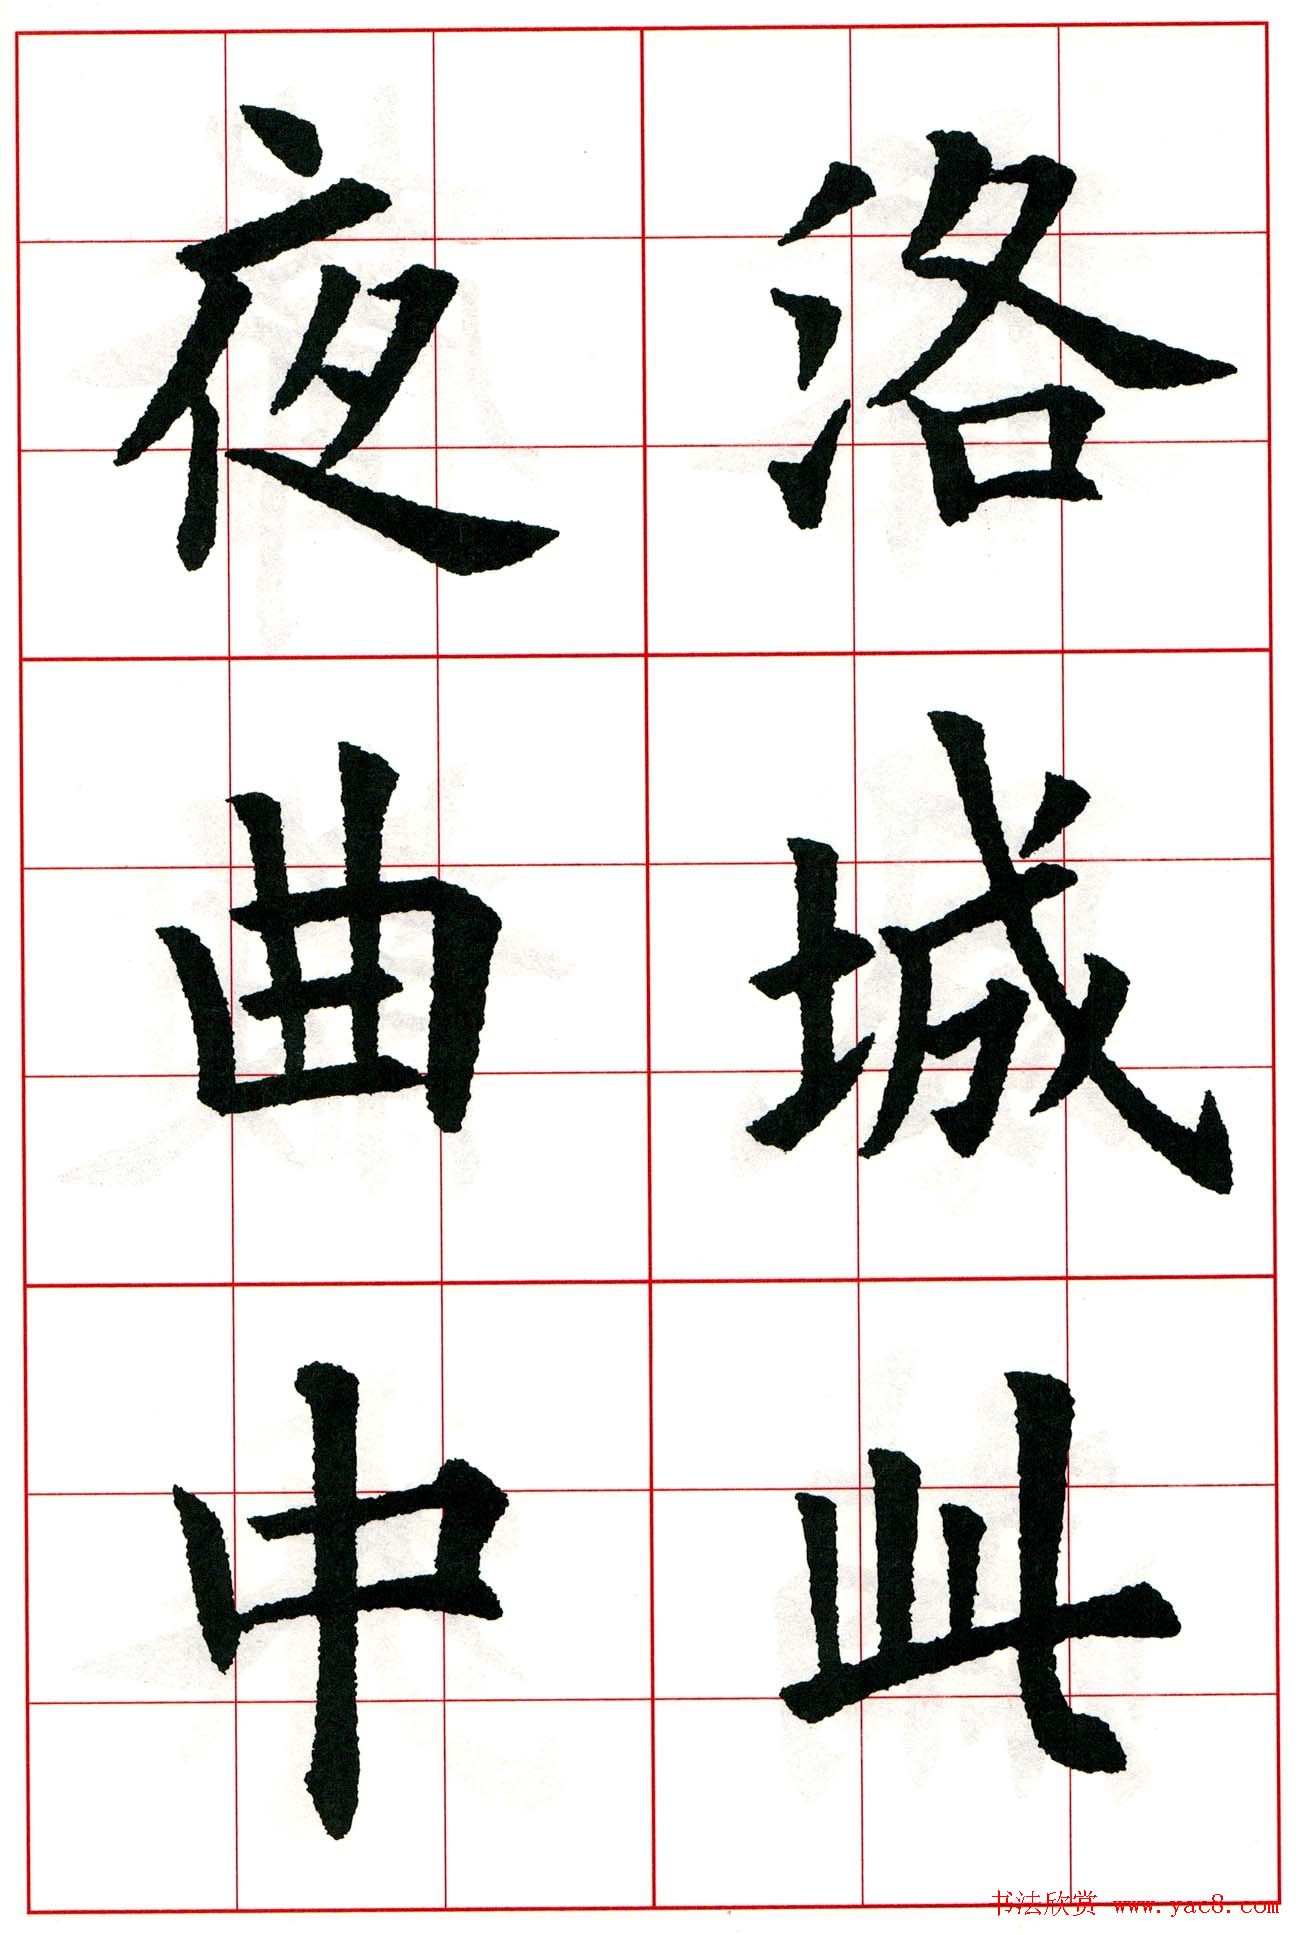 洛城此
夜曲中
书法欣赏 www.yac8.com